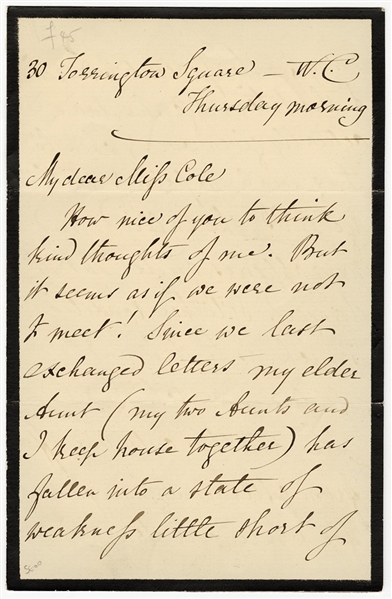 £25
30 Torrington Square – W.C.
Thursday morning
My dear Miss Cole
How nice of you to think
kind thoughts of me. But
it seems as if we were not
to meet! Since we last
exchanged letters my elder
Aunt (my two Aunts and
I keep house together) has
fallen into a state of
weakness little short of